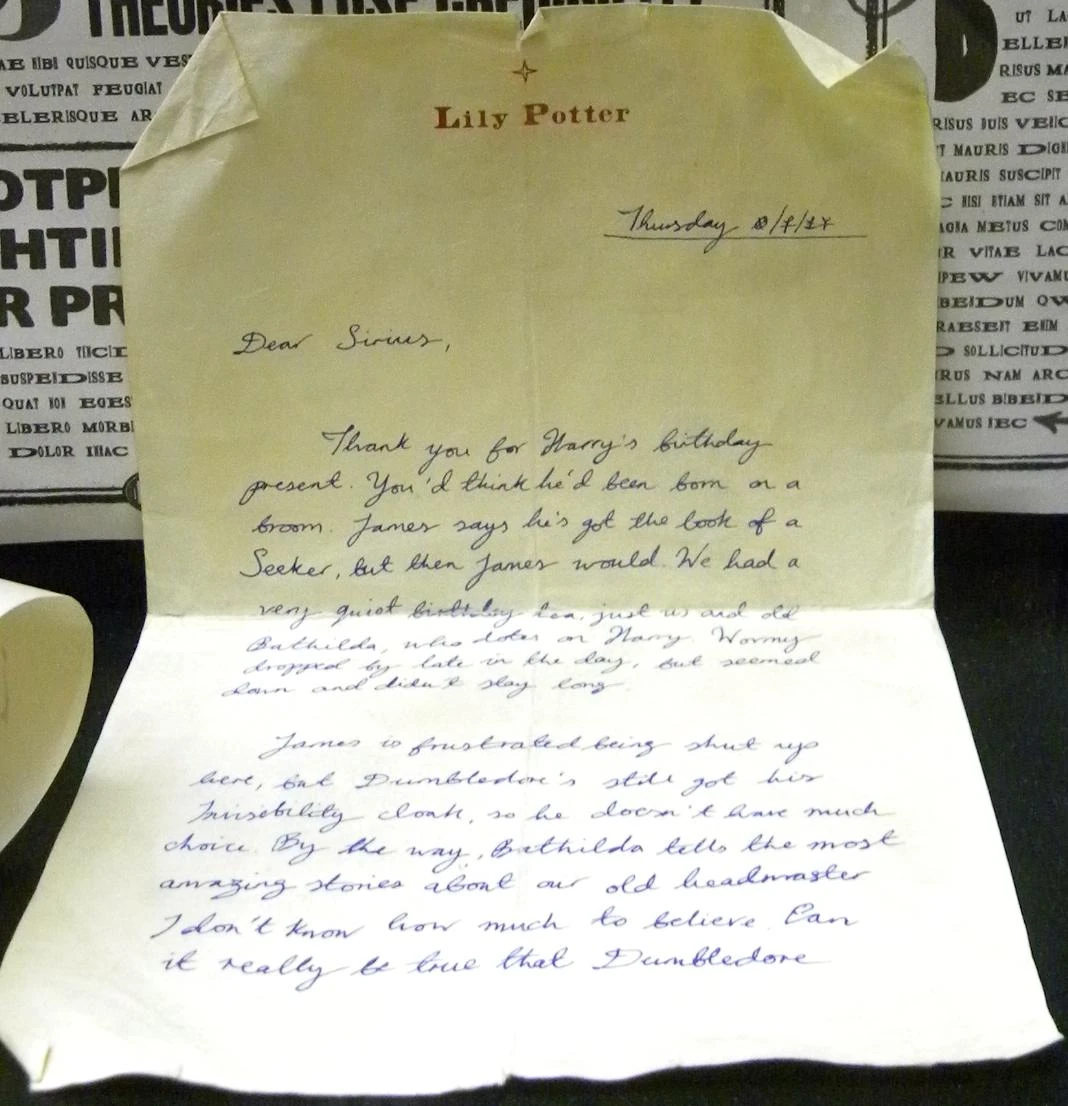 THEORIES LOSE
QUISQUE
VOLUTPAT FEUGIAT
ELERISQUE AR
OTP
HTI
R PR
LIBERO
SUSPENDISSE
QUAT NON EGES
LIBERO MORB
DOLOR
Lily Potter
Thursday
Dear Sirius,
Thank you for Harry's birthday
present. You'd think he'd been born on a
broom. James says he's got the look of a
Seeker, but then James would. We had a
very quiet birthday tea, just us and old
Bathilda, who dotes on Harry. Wormy
dropped by late in the day, but seemed
down and didn't stay long.
James is frustrated being shut up
here, but Dumbledore's still got his
Invisibility cloak, so he doesn't have much
choice. By the way, Bathilda tells the most
amazing stories about our old headmaster
I don't know how much to believe. Can
it really be true that Dumbledore
UT LA
ELLE
RISUS MA
EC SE
RISUS DUIS
MAURIS
AURIS SUSCIPIT
NISI ETIAM SIT A
METUS CON
R VITAE LAC
VIVAMU
RAESENT ENIM
SOLLICITUD
RUS NAM ARC
ELLUS BIBEND
VAMUS NEC